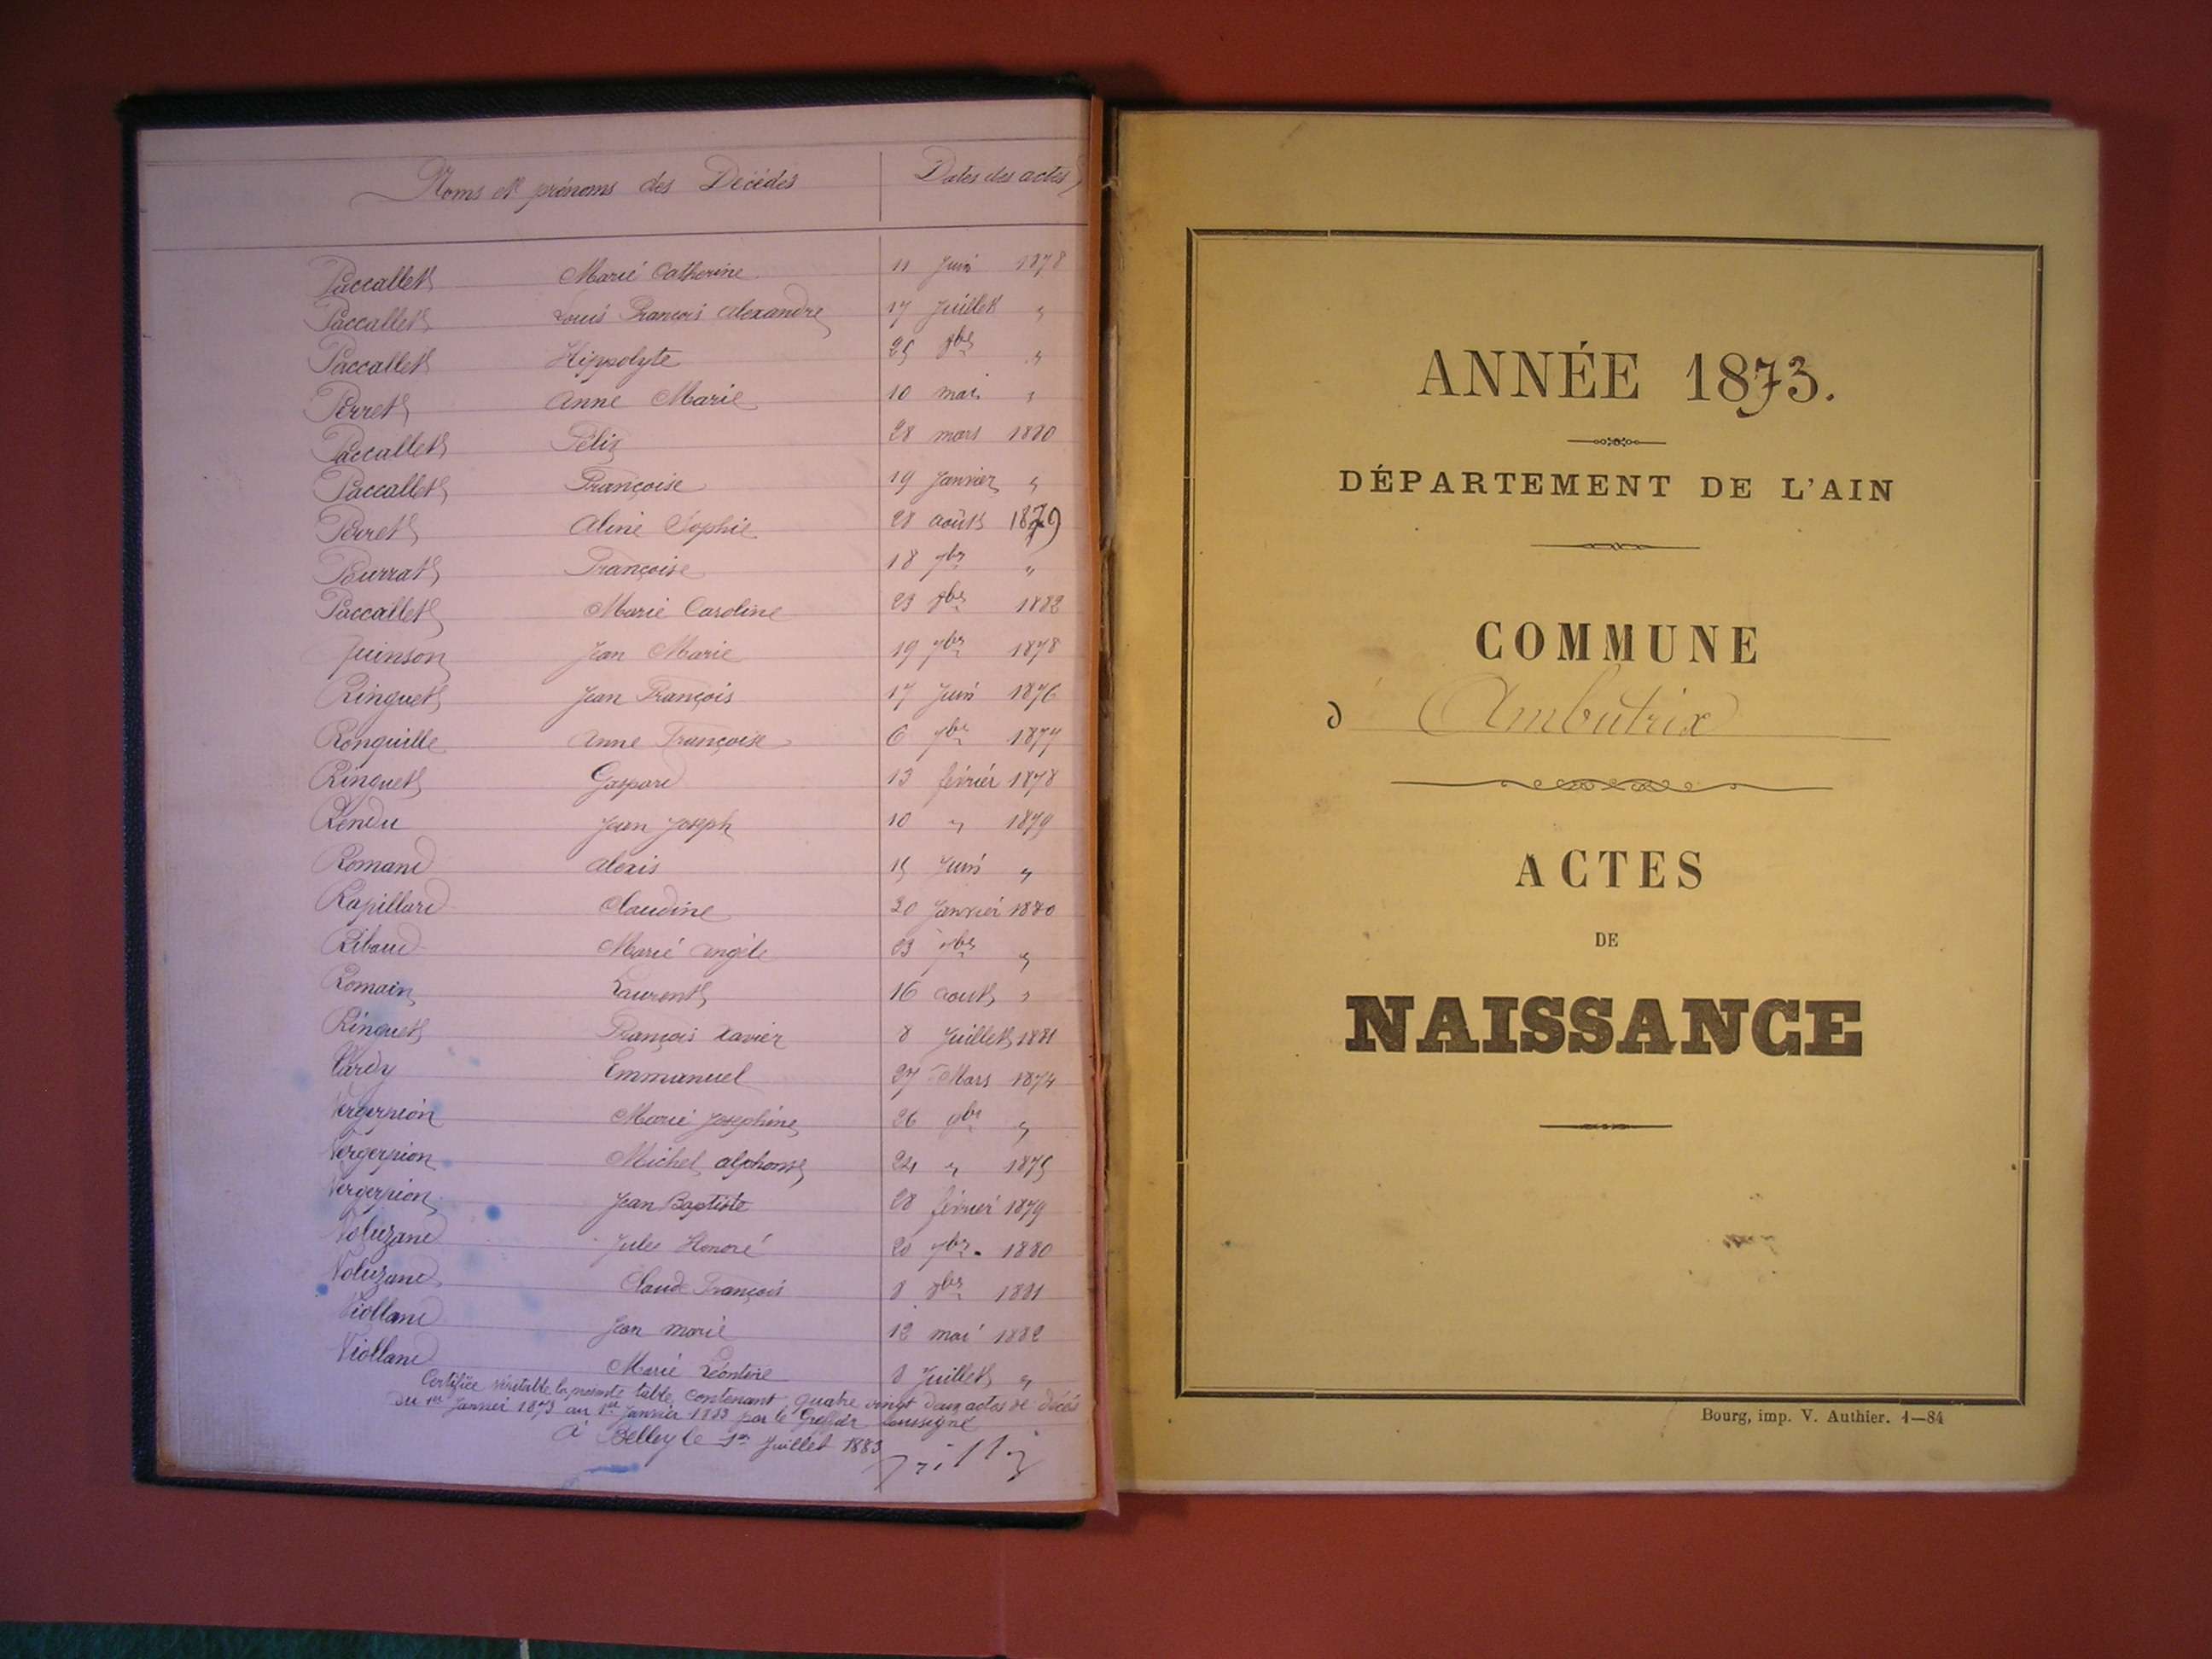 Noms et prénoms des Décédés Dates des actes
Paccallet Marie Catherine 11 Juin 1878
Paccallet Louis François Alexandre 17 Juillet "
Paccallet Hippolyte 25 8bre "
Perret Anne Marie 10 mai "
Paccallet Félix 28 mars 1880
Paccallet Françoise 19 Janvier "
Perret Aline Sophie 28 août 1879
Pourrat Françoise 18 7bre "
Paccallet Marie Caroline 23 8bre 1882
Quinson Jean Marie 19 7bre 1878
Ringuet Jean François 17 Juin 1876
Ronguille Anne Françoise 6 7bre 1877
Ringuet Gaspard 13 février 1878
Rendu Jean Joseph 10 " 1879
Romand Alexis 15 Juin "
Rapillard Claudine 20 Janvier 1880
Ribaud Marie Angèle 23 7bre "
Romain Laurent 16 août "
Ringuet François Xavier 8 Juillet 1881
Vardy Emmanuel 27 Mars 1874
Vergerpion Marie Joséphine 26 9bre "
Vergerpion Michel alphonse 24 " 1875
Vergerpion Jean Baptiste 28 février 1879
Voluzand Jules Honoré 20 7bre 1880
Voluzand Claude François 8 8bre 1881
Violland Jean Marie 12 mai 1882
Violland Marie Léontine 8 Juillet "
Certifiée véritable la présente table contenant quatre vingt douze actes de décès
du 1er Janvier 1873 au 1er Janvier 1883 par le Greffier soussigné
à Belley le 1er Juillet 1883
ANNÉE 1873.
DÉPARTEMENT DE L'AIN
COMMUNE
d'Ambutrix
ACTES
DE
NAISSANCE
Bourg, imp. V. Authier. 1—84